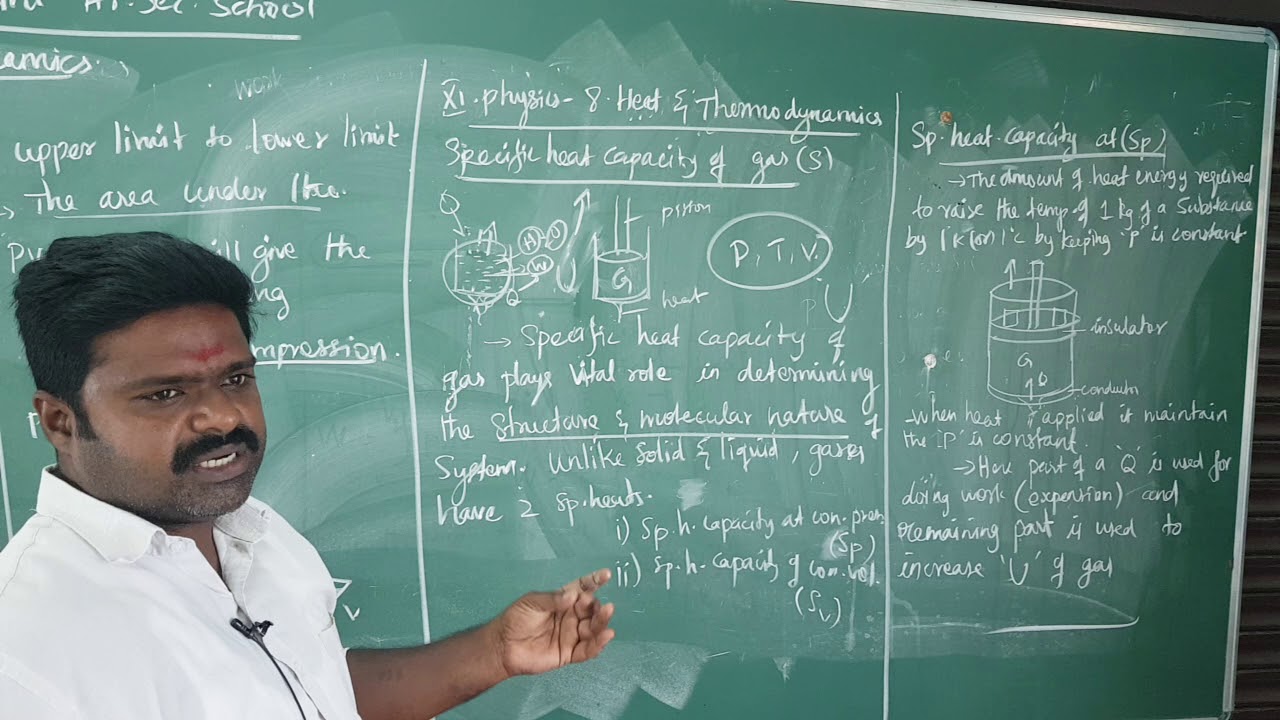 Hr. Sec. School
amics.
work
upper limit to lower limit
→ The area under the
PV ill give the
ng
mpression.
P
V
XI. physics - 8. Heat & Thermodynamics
Specific heat capacity of gas (S)
piston
P, T, V.
W
Q
G
heat
P U
→ Specific heat capacity of
gas plays vital role in determining
the Structure & molecular nature of
System. Unlike Solid & liquid, gases
have 2 sp. heats.
i) Sp. h. capacity at con. pres.
(Sp)
ii) Sp. h. capacity of con. vol.
(Sv)
Sp. heat capacity at (Sp)
→ The amount of heat energy required
to raise the temp of 1 kg of a Substance
by 1°K (or) 1°C by keeping 'P' is constant
insulator
G
Q
conductor
- when heat is applied it maintain
the 'P' is constant.
→ Here part of a 'Q' is used for
doing work (expention) and
remaining part is used to
increase 'U' of gas